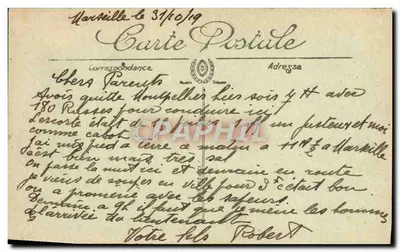 Marseille le 31/10/19
Carte Postale
Correspondance
Adresse
Chers Parents
Avois quitté Montpellier hier soir 7 H avec
180 Russes pour conduire ici
L'escorte était de 12 un et moi
comme cabot
J'ai mis pied à terre ce matin à 11 H ½ à Marseille
c'est bien mais très sal
on passe la nuit ici et demain en route
je viens de souper en ville pour 3f c'était bon
on a promené avec les
Demain a 9 H faut que je mène les hommes
à l'arrivée du lieutenant
Votre fils Robert